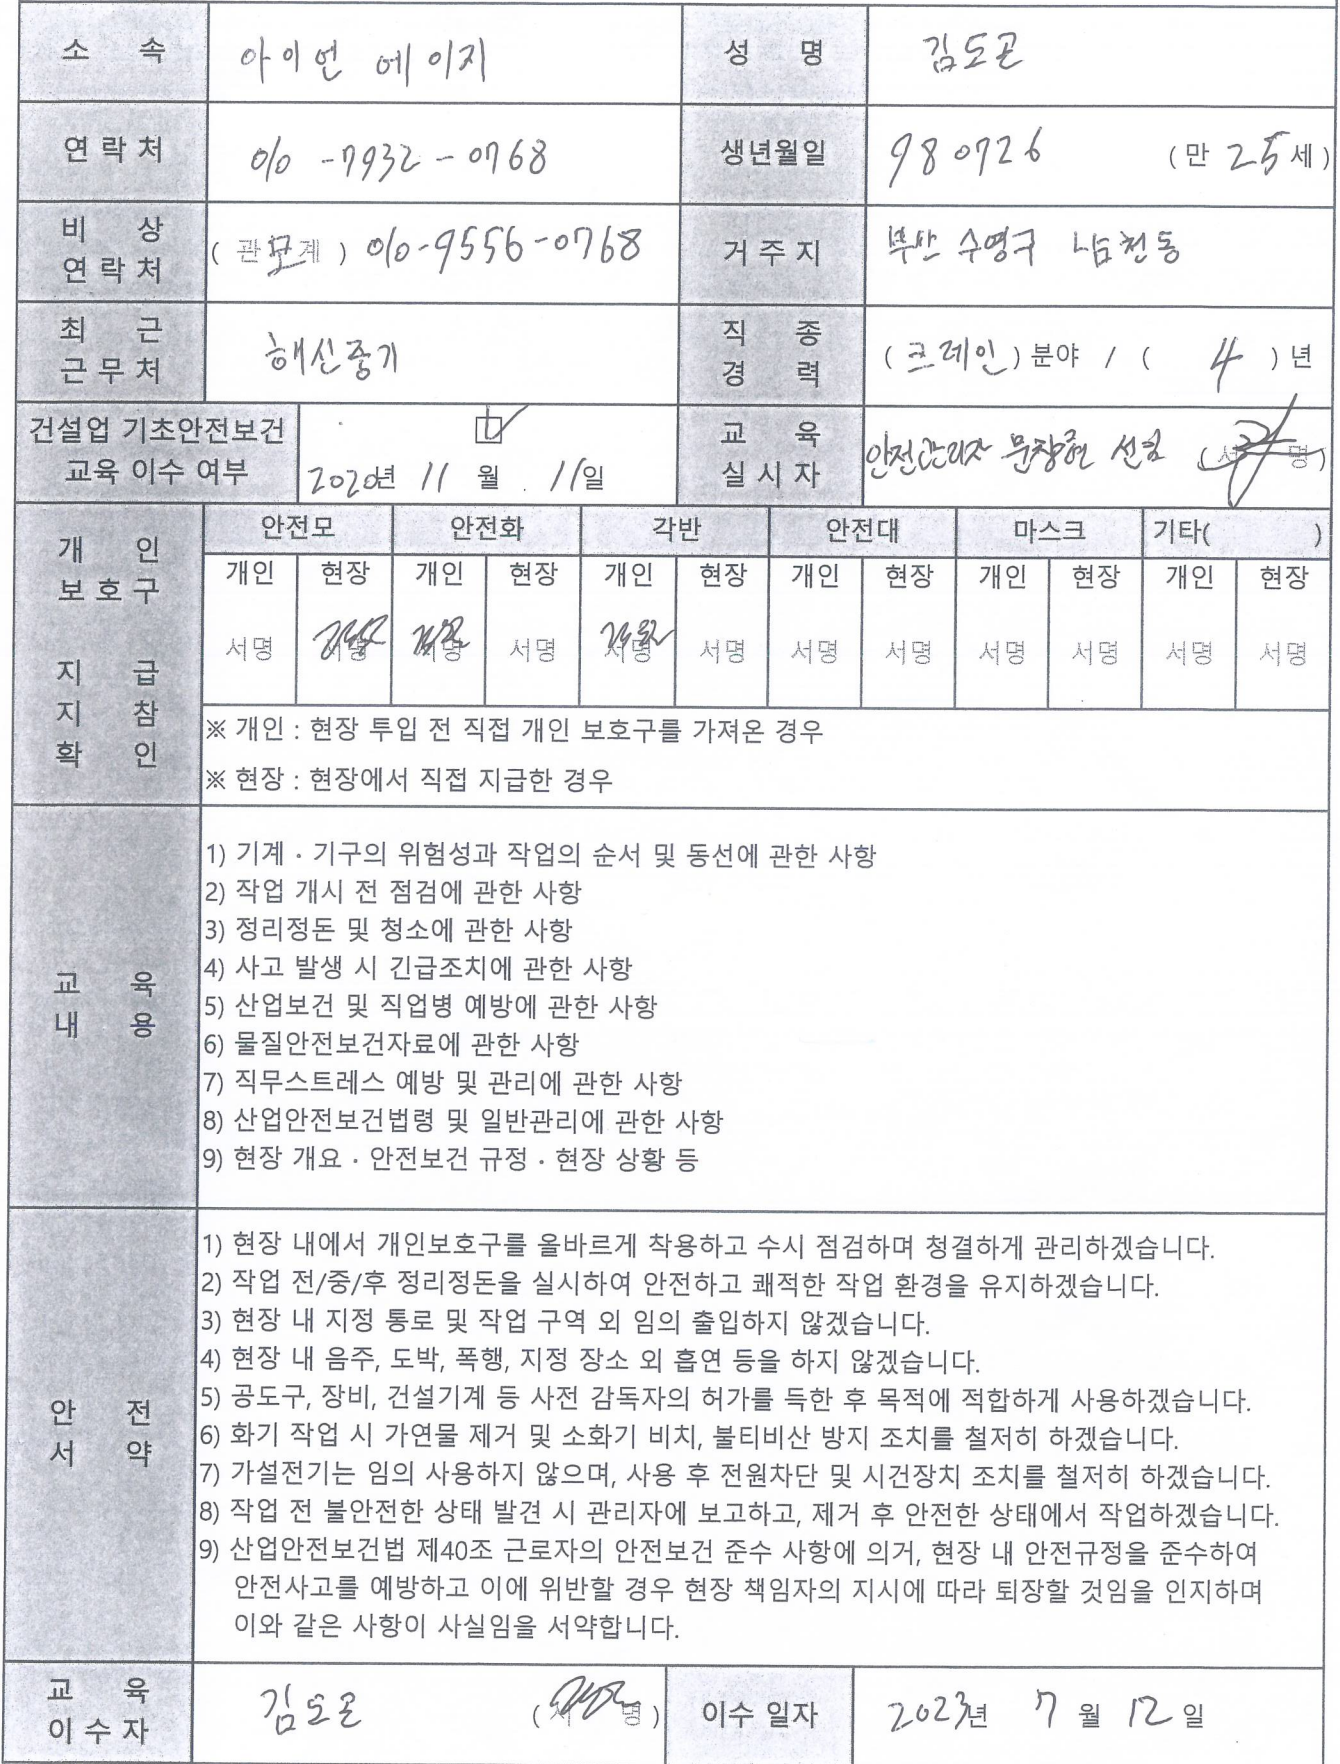 소 속 아이언 에이지 성 명 김도곤
연락처 010-7932-0768 생년월일 980726 (만 25세)
비 상 연락처 (관계) 모 010-9556-0768 거주지 부산 수영구 남천동
최 근 근무처 해신중기 직 종 경 력 (크레인) 분야 / ( 4 ) 년
건설업 기초안전보건
교육 이수 여부 2020년 11월 11일 교 육 실시자 안전관리자 문창현 선임 (서명)
개 인 보호구 지 급 지 참 확 인
안전모 안전화 각반 안전대 마스크 기타( )
개인 현장 개인 현장 개인 현장 개인 현장 개인 현장 개인 현장
서명 서명 서명 서명 서명 서명 서명 서명 서명 서명 서명 서명
※ 개인 : 현장 투입 전 직접 개인 보호구를 가져온 경우
※ 현장 : 현장에서 직접 지급한 경우
교 육 내 용
1) 기계 · 기구의 위험성과 작업의 순서 및 동선에 관한 사항
2) 작업 개시 전 점검에 관한 사항
3) 정리정돈 및 청소에 관한 사항
4) 사고 발생 시 긴급조치에 관한 사항
5) 산업보건 및 직업병 예방에 관한 사항
6) 물질안전보건자료에 관한 사항
7) 직무스트레스 예방 및 관리에 관한 사항
8) 산업안전보건법령 및 일반관리에 관한 사항
9) 현장 개요 · 안전보건 규정 · 현장 상황 등
안 전 서 약
1) 현장 내에서 개인보호구를 올바르게 착용하고 수시 점검하며 청결하게 관리하겠습니다.
2) 작업 전/중/후 정리정돈을 실시하여 안전하고 쾌적한 작업 환경을 유지하겠습니다.
3) 현장 내 지정 통로 및 작업 구역 외 임의 출입하지 않겠습니다.
4) 현장 내 음주, 도박, 폭행, 지정 장소 외 흡연 등을 하지 않겠습니다.
5) 공도구, 장비, 건설기계 등 사전 감독자의 허가를 득한 후 목적에 적합하게 사용하겠습니다.
6) 화기 작업 시 가연물 제거 및 소화기 비치, 불티비산 방지 조치를 철저히 하겠습니다.
7) 가설전기는 임의 사용하지 않으며, 사용 후 전원차단 및 시건장치 조치를 철저히 하겠습니다.
8) 작업 전 불안전한 상태 발견 시 관리자에 보고하고, 제거 후 안전한 상태에서 작업하겠습니다.
9) 산업안전보건법 제40조 근로자의 안전보건 준수 사항에 의거, 현장 내 안전규정을 준수하여
안전사고를 예방하고 이에 위반할 경우 현장 책임자의 지시에 따라 퇴장할 것임을 인지하며
이와 같은 사항이 사실임을 서약합니다.
교 육 이수자 김도곤 (서명) 이수 일자 2023년 7월 12일